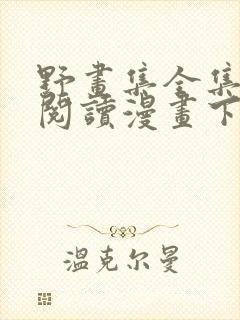 野畫集全集
閱讀漫畫下
溫克尔曼